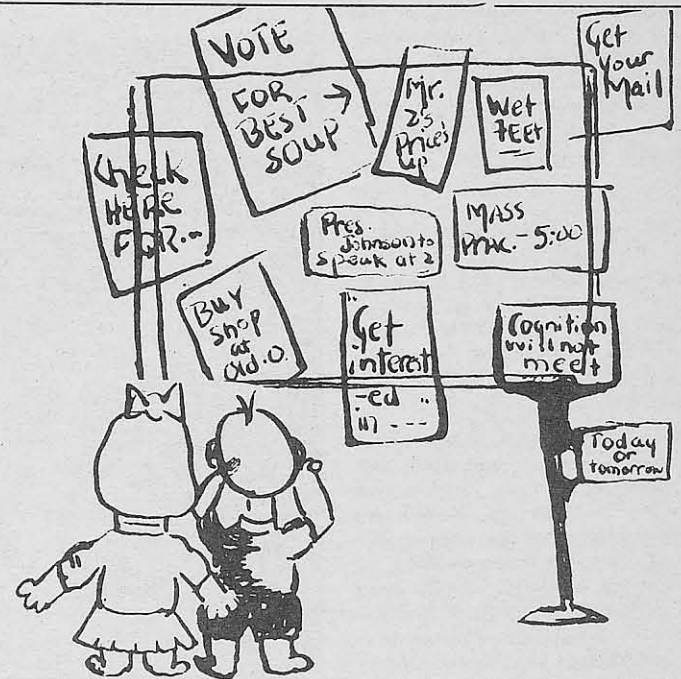 VOTE
FOR
BEST
SOUP
Mr.
Z's
Prices
up
Wet
FEET
Get
Your
Mail
Check
HERE
FOR...
Pres.
Johnson to
speak at 2
MASS
PRAC. - 5:00
BUY
shop
at
Old.O.
"Get
interest
-ed "
in ----
Cognition
will not
meet
Today
or
tomorrow